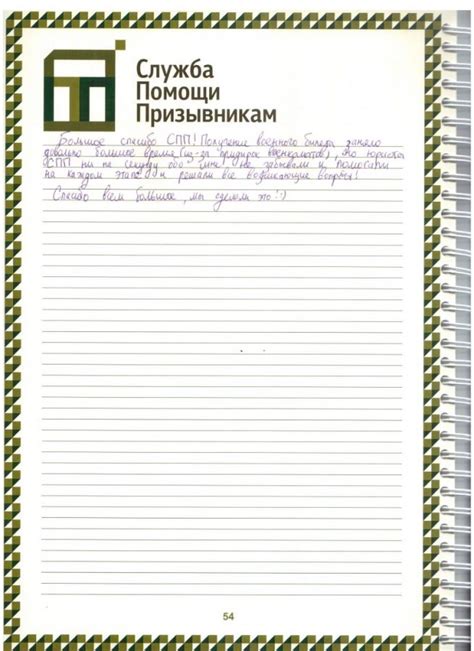 Служба
Помощи
Призывникам
Большое спасибо СПП! Получение военного билета заняло
довольно большое время (из-за придирок военкоматов), но юристы
СПП ни на секунду обо мне не забывали и помогали
на каждом этапе и решали все возникающие вопросы!
Спасибо вам большое, мы сделали это :)
54